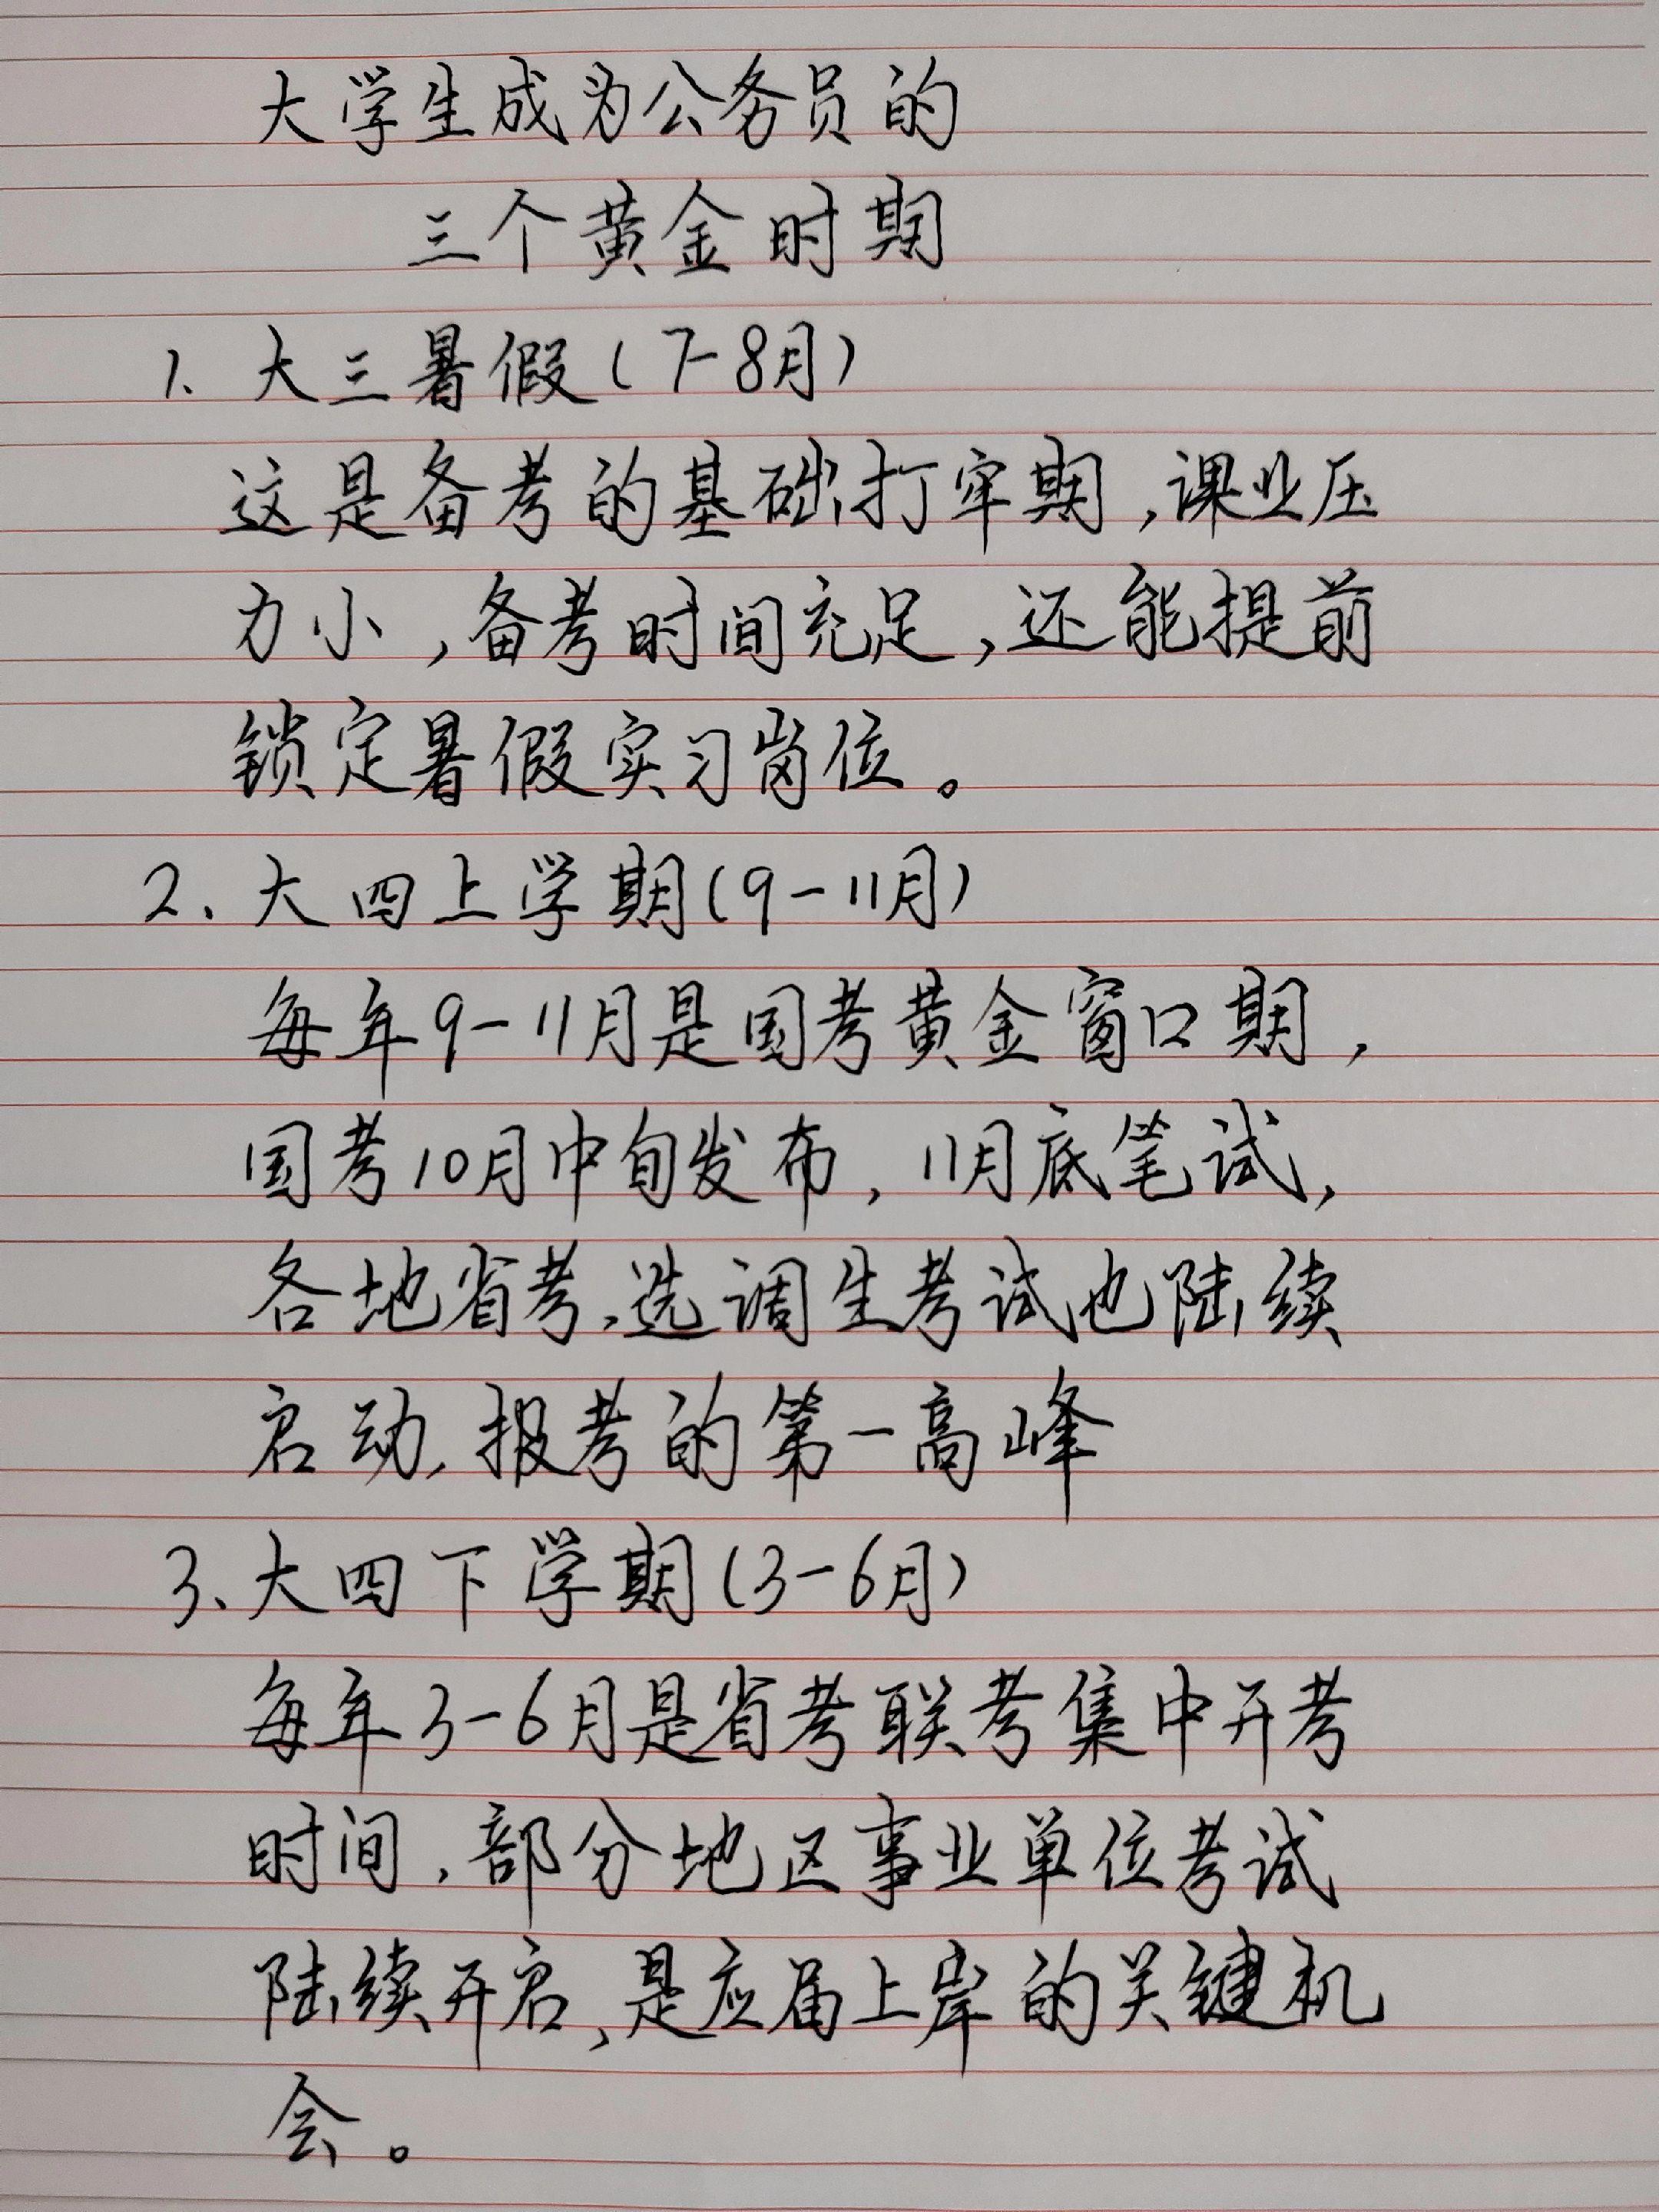 大学生成为公务员的
三个黄金时期
1、大三暑假(7-8月)
这是备考的基础打牢期,课业压
力小,备考时间充足,还能提前
锁定暑假实习岗位。
2、大四上学期(9-11月)
每年9-11月是国考黄金窗口期,
国考10月中旬发布,11月底笔试,
各地省考、选调生考试也陆续
启动,报考的第一高峰
3、大四下学期(3-6月)
每年3-6月是省考联考集中开考
时间,部分地区事业单位考试
陆续开启,是应届上岸的关键机
会。